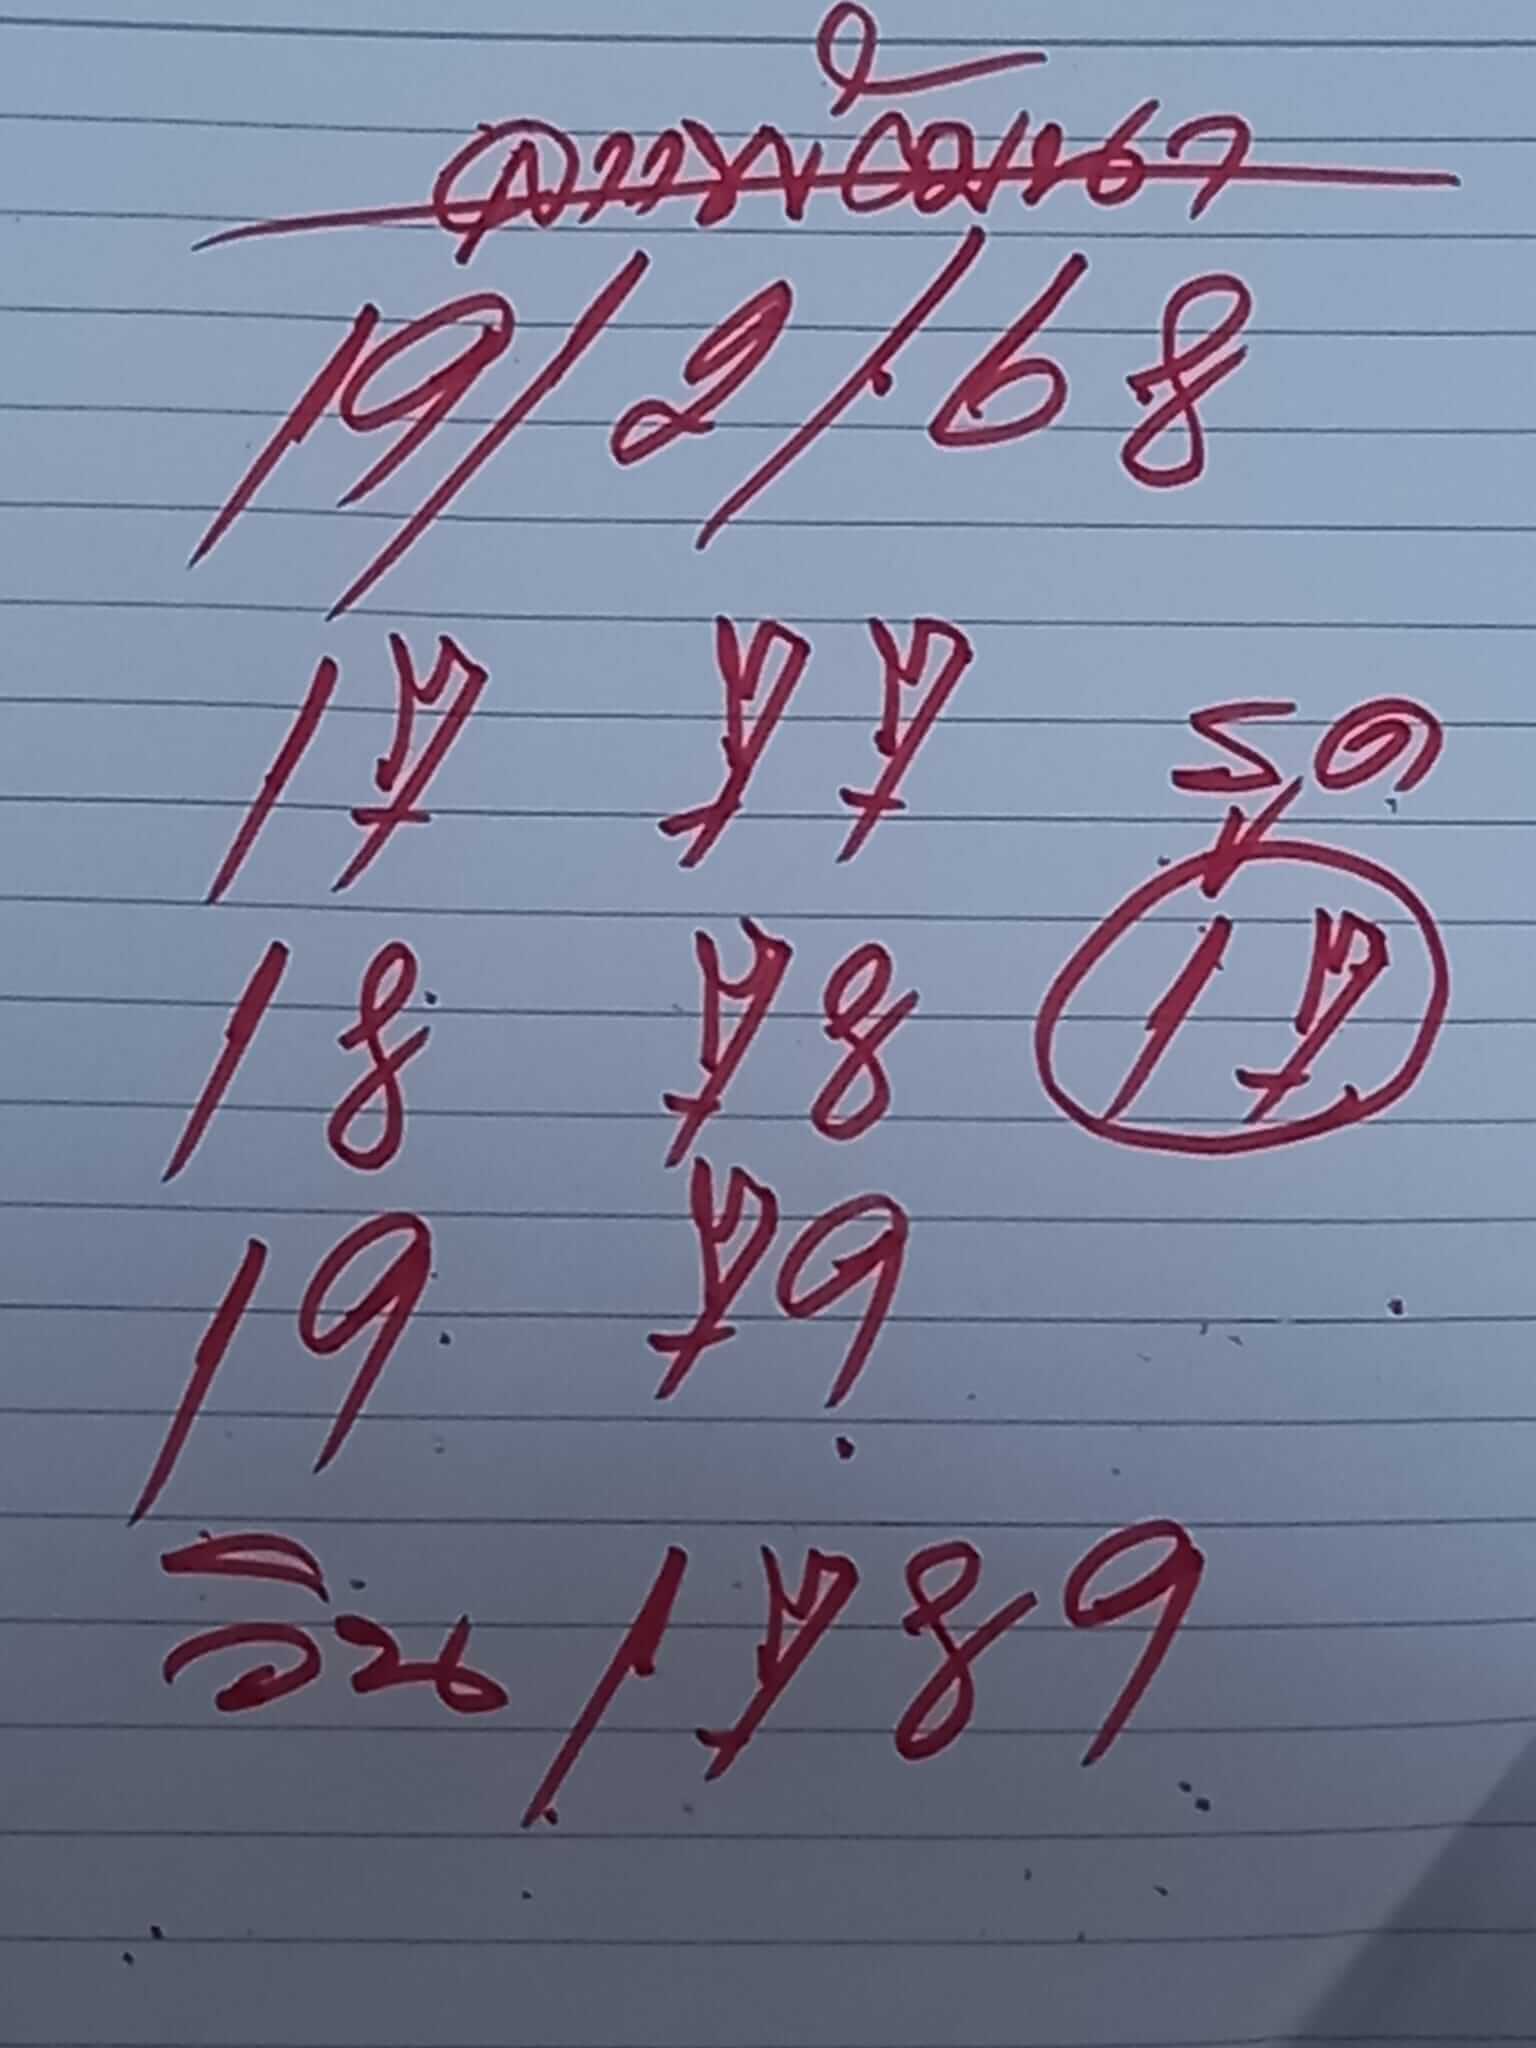 19/2/68
17 77
รูด
18 78 17
19 79
วิน 1789